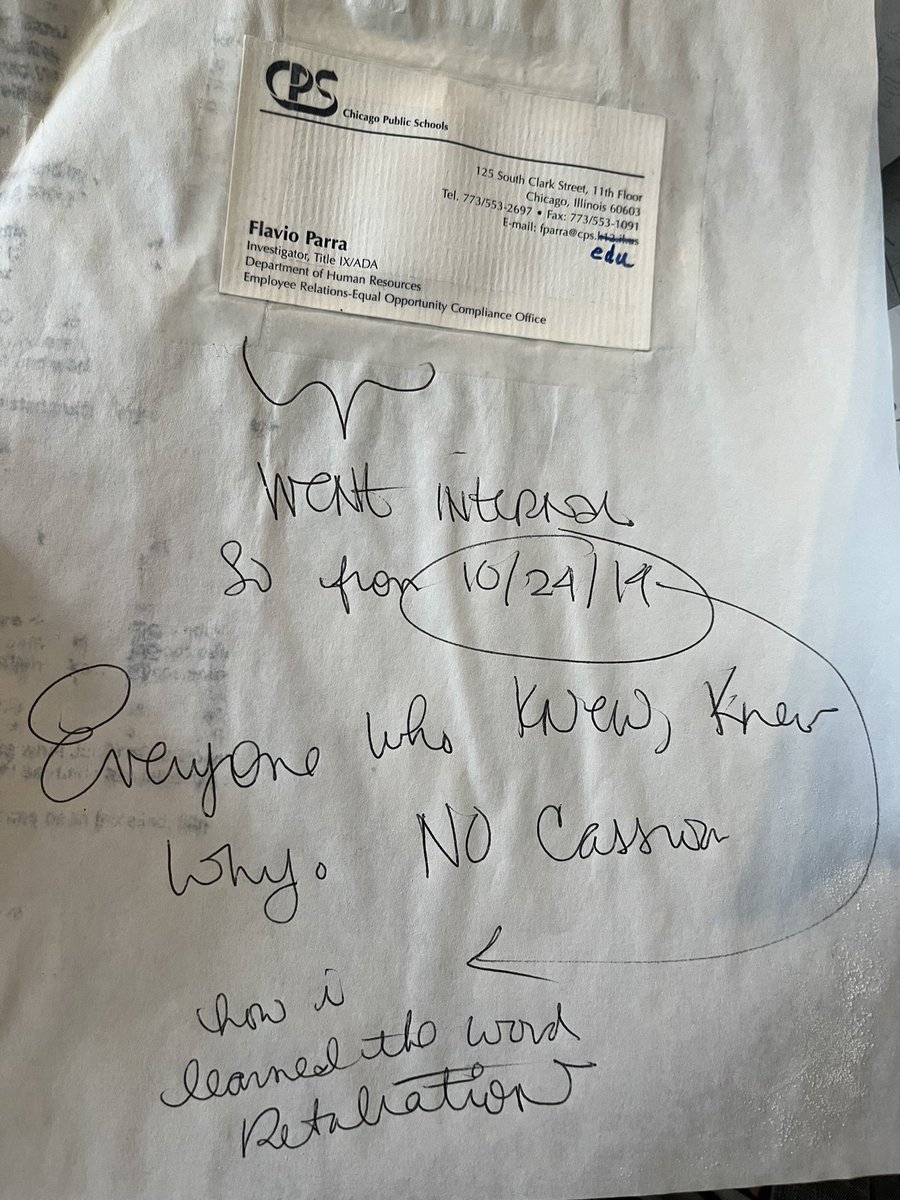 CPS
Chicago Public Schools
125 South Clark Street, 11th Floor
Chicago, Illinois 60603
Tel. 773/553-2697 • Fax: 773/553-1091
E-mail: fparra@cps.k12.il.us
edu
Flavio Parra
Investigator, Title IX/ADA
Department of Human Resources
Employee Relations-Equal Opportunity Compliance Office
WENT INTERNAL
So from 10/24/19
Everyone who KNEW, Knew
Why. NO
how i
learned the word
Retaliation